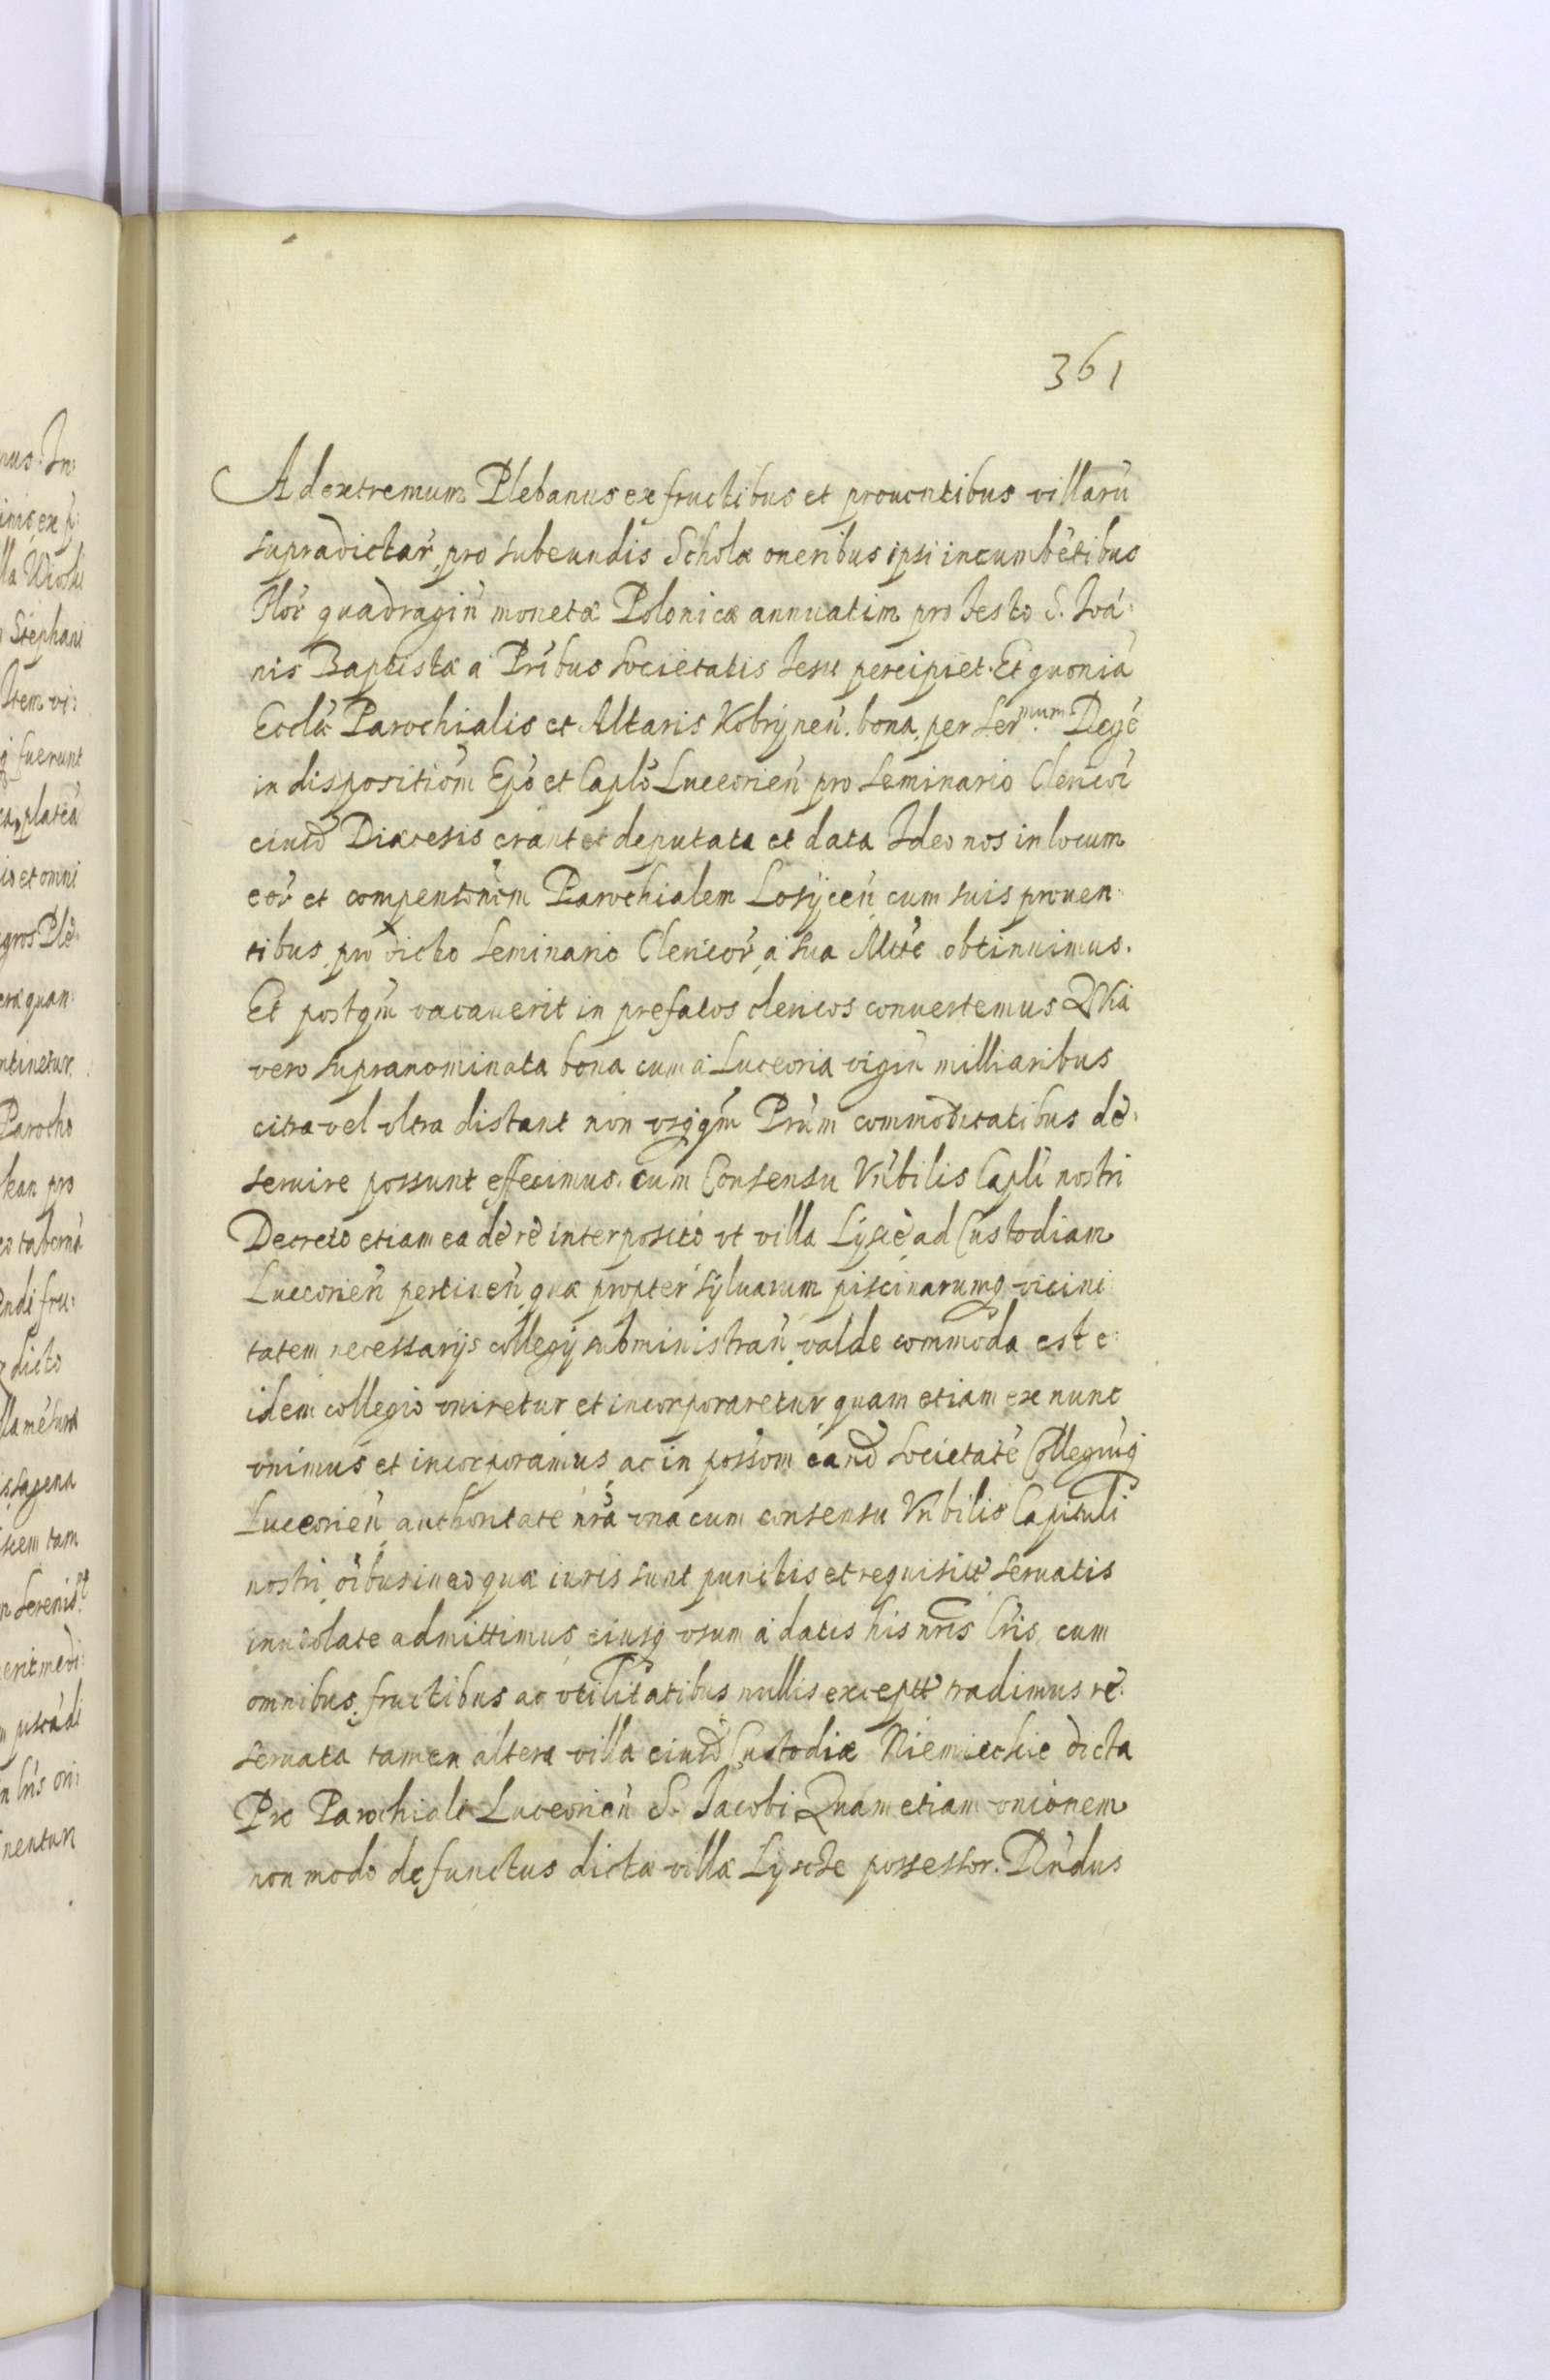 361
Ad extremum Plebanus ex fructibus et prouentibus villarũ
supradictar̃, pro subeundis Scholæ oneribus ipsi incumbẽtibus
flor̃ quadragiñ monetæ Polonicæ annuatim pro festo S. Joã:
nis Baptistæ a Prĩbus Societatis Jesu percipiet. Et quoniã
Ecclĩæ Parochialis et Altaris Kobrÿneñ. bona, per Ser.mum Regẽ
in dispositiõm Epõ et Caplõ Luceorieñ pro Seminario Clericor̃
eiusd̃ Diæcesis erant et deputata et data Ideo nos in locum
eor̃ et compensõnem Parochialem Losÿceñ cum suis prouen:
tibus, pro dicto Seminario Clericor̃, a sua Mtẽ obtinuimus.
Et postqm̃ vacauerit in prefatos clericos conuertemus Quia
vero supranominata bona cum a Luceoria vigiñ milliaribus
citra vel vltra distant non vsqqm̃ Prũm commoditatibus de:
seruire possunt effecimus. cum Consensu Vñbilis Capli nostri
Decreto etiam ea de re interposito vt villa Lÿscè ad Custodiam
Luceorieñ pertineñ quæ propter sÿluarum piscinarumq vicini
tatem necessarÿs collegÿ subministrañ valde commoda est e:
idem collegio vniretur et incorporaretur quam etiam ex nunc
vnimus et incorporamus ac in possom̃ eand̃ Societatẽ Collegiũq
Luceorieñ authoritate nrã vna cum consensu Vñbilis Capituli
nostri oĩbus in eo quæ iuris sunt punctis et requisitis seruatis
inuiolate admittimus eiusq vsum a datis his nrĩs lrĩs cum
omnibus fructibus ac vtilitatibus nullis exceptis tradimus re:
seruata tamen altera villa eiusd̃ Custodiæ Niemieckie dicta
Pro Parochiale Luceorieñ S. Jacobi Quam etiam vnionem
non modo defunctus dictæ villæ Lyscze possessor. Rñdus